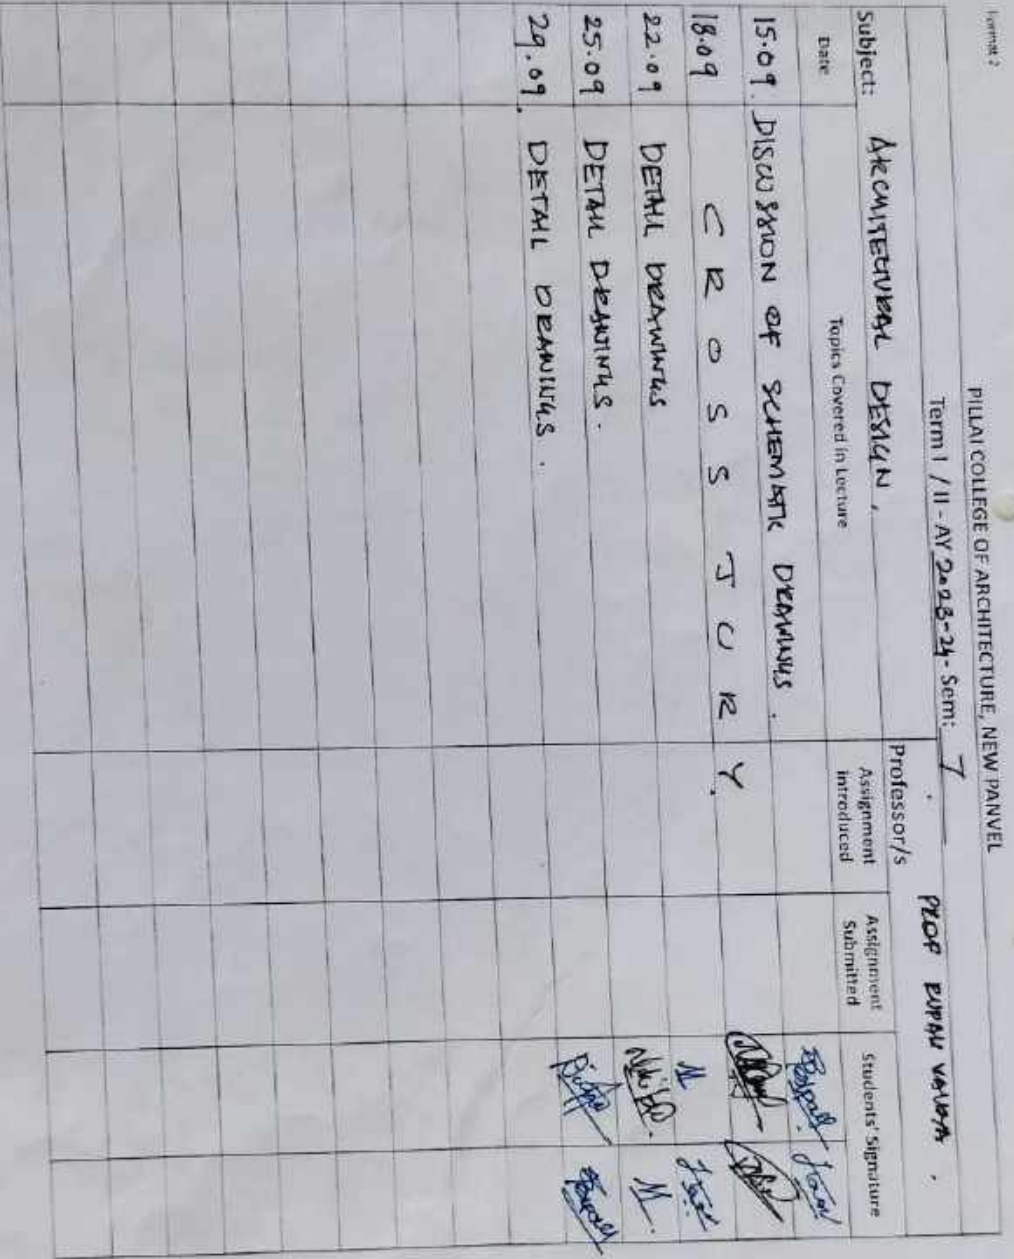 Format 2
PILLAI COLLEGE OF ARCHITECTURE, NEW PANVEL
Term I / II - AY 2023-24 - Sem: 7
Subject: ARCHITECTURAL DESIGN.
Professor/s PROF RUPAN
Date Topics Covered in Lecture Assignment introduced Assignment Submitted Students' Signature
15.09. DISCUSSION OF SCHEMATIC DRAWINGS.
18.09 CROSS JURY.
22.09 DETAIL DRAWINGS
25.09 DETAIL DRAWINGS.
29.09. DETAIL DRAWINGS.